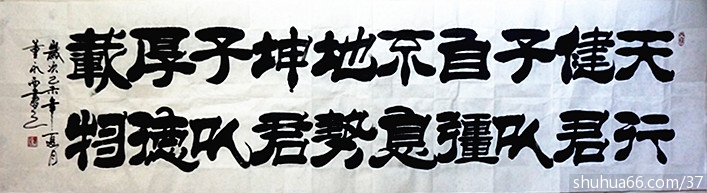 天行
健君
子以
自彊
不息
地勢
坤君
子以
厚德
載物
歲次乙未年一月
董永書
shuhua66.com/37